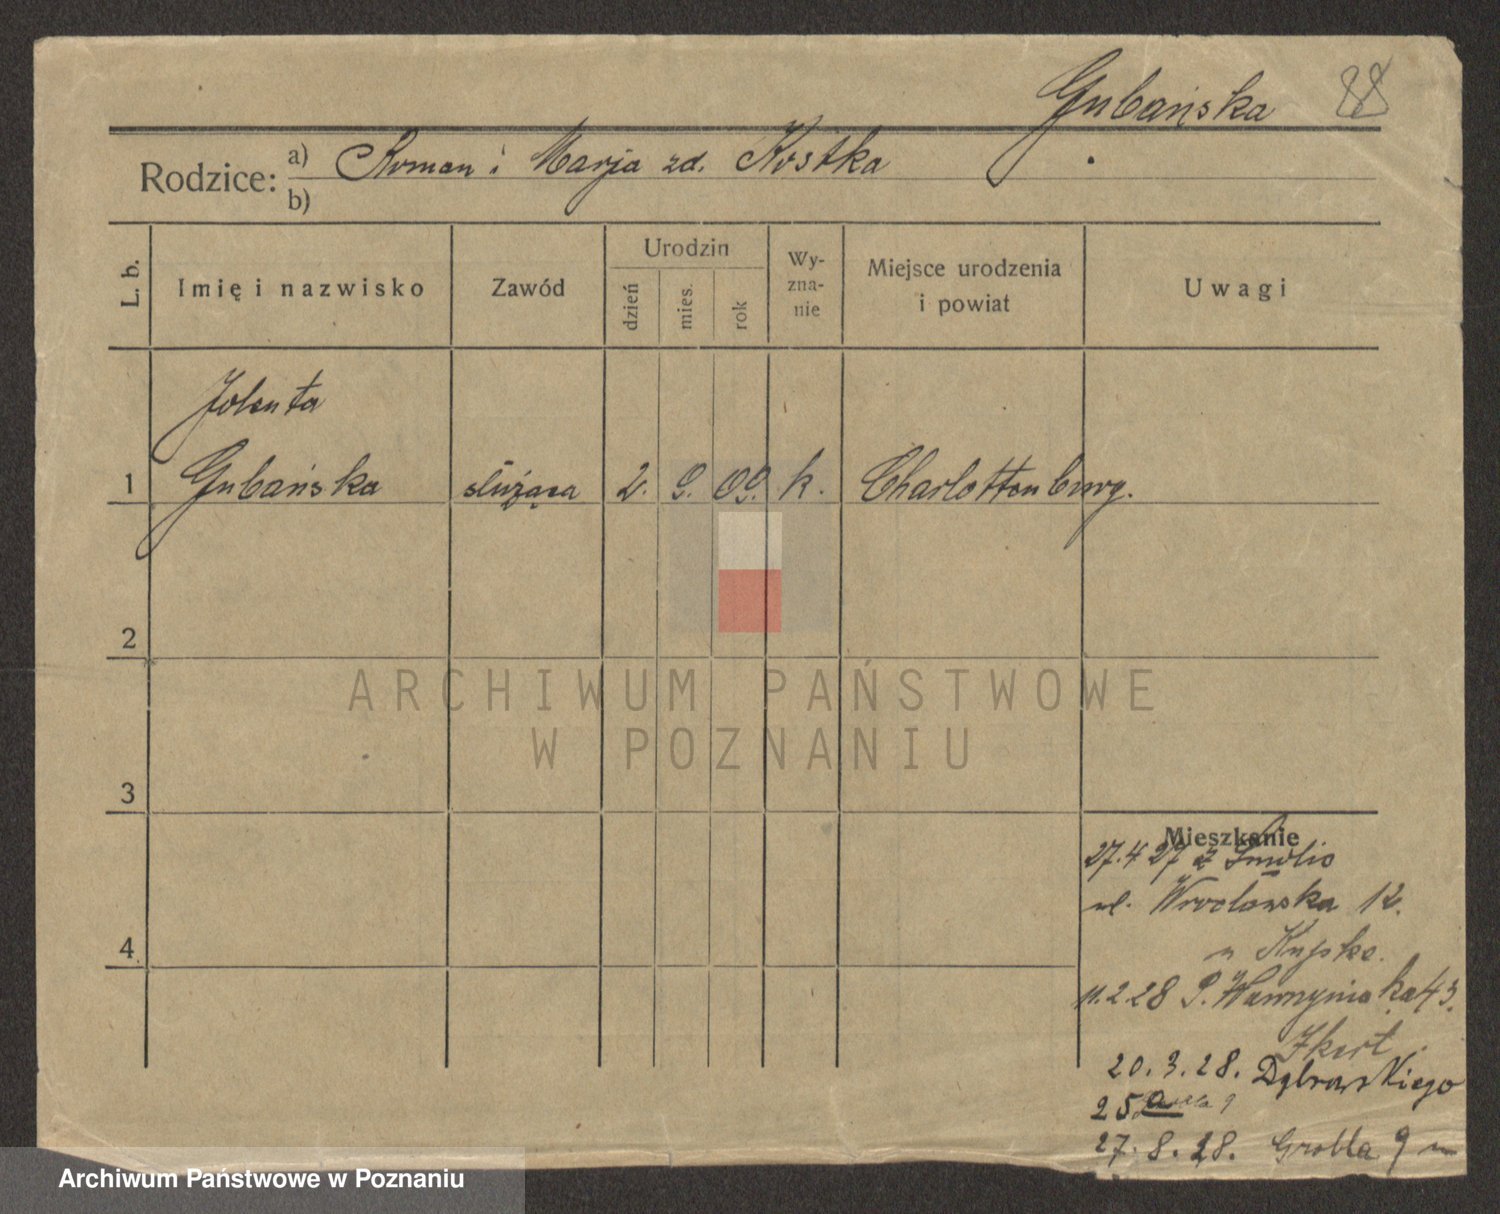 Gubańska 88
Rodzice: a) Roman i Marja zd. Kostka
b)
L. b. Imię i nazwisko Zawód Urodzin dzień mies. rok Wy-zna-nie Miejsce urodzenia i powiat Uwagi
Jolenta
1 Gubańska służąca 2. 9. 09. k. Charlottenburg.
2
3
4
Mieszkanie
27.4 27 z
ul. Wrocławska 12.
u
11.2.28 P. Wawrzyniaka 43.
20.3.28. Dąbrowskiego
25a
27.8.28. Grobla 9
ARCHIWUM PAŃSTWOWE
W POZNANIU
Archiwum Państwowe w Poznaniu